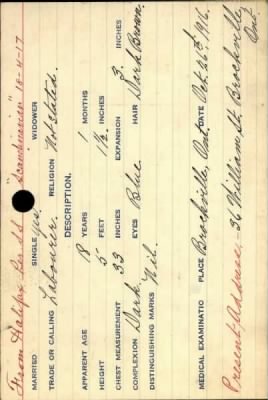 From Halifax Per S.S. "Scandinavian" 18-4-17
MARRIED SINGLE Yes. WIDOWER
TRADE OR CALLING Labourer. RELIGION Not Stated.
DESCRIPTION.
APPARENT AGE 18 YEARS 1 MONTHS
HEIGHT 5 FEET 1½ INCHES
CHEST MEASUREMENT 33 INCHES EXPANSION 3 INCHES
COMPLEXION Dark. EYES Blue HAIR Dark Brown.
DISTINGUISHING MARKS Nil.
MEDICAL EXAMINATIO PLACE Brockville, Ont. DATE Oct. 26th 1916.
Present Address:- 36 William St. Brockville,
Ont.